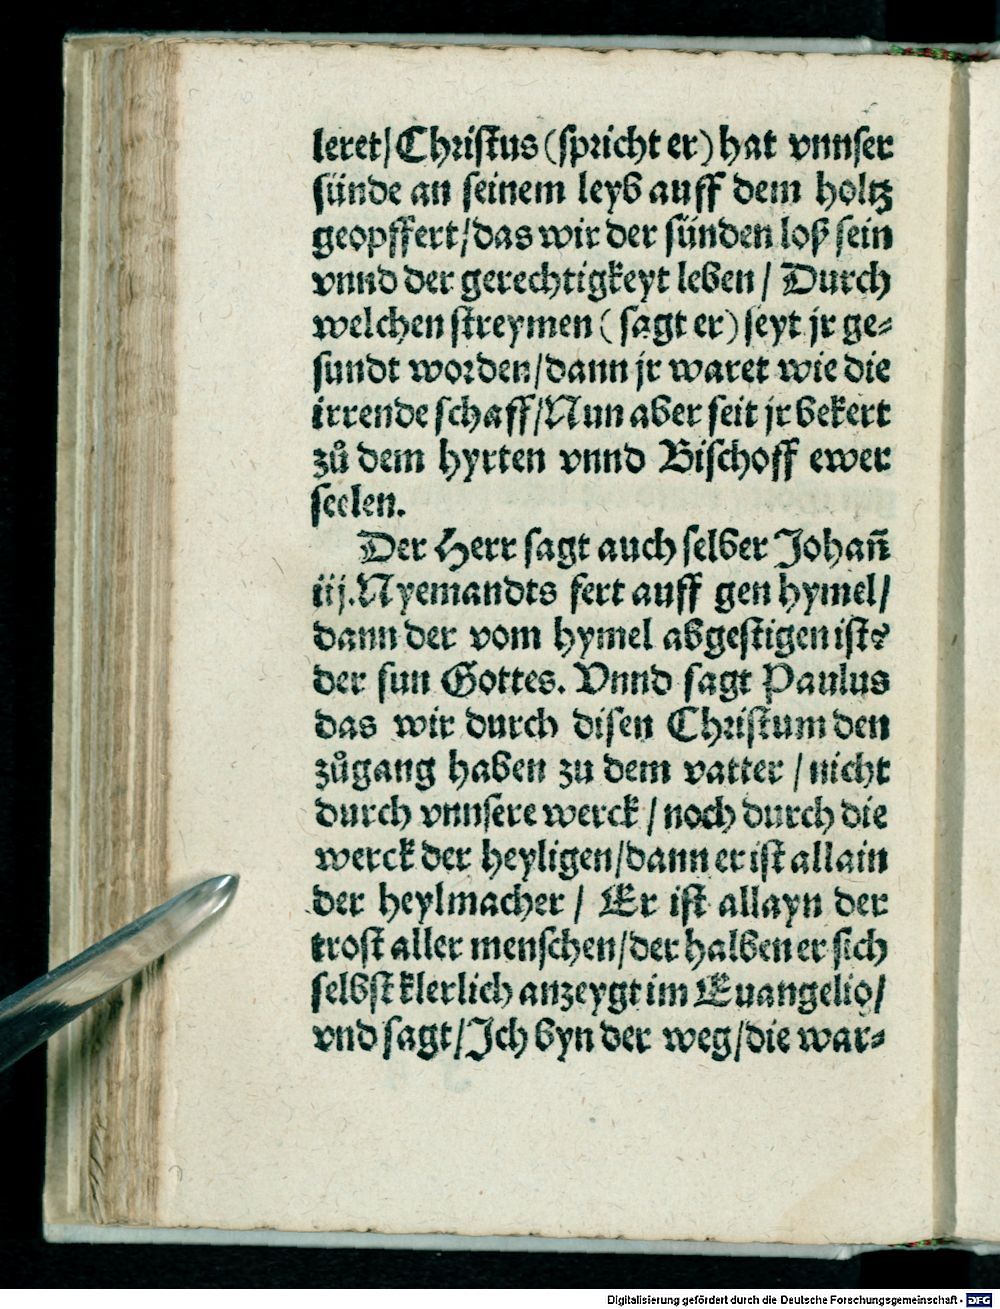 leret/Christus (spricht er) hat vnnser
sünde an seinem leyb auff dem holtz
geopffert/das wir der sünden loß sein
vnnd der gerechtigkeyt leben / Durch
welchen streymen ( sagt er) seyt jr ge⸗
sundt worden/dann jr waret wie die
irrende schaff/Nun aber seit jr bekert
zů dem hyrten vnnd Bischoff ewer
seelen.
Der Herr sagt auch selber Johañ
iij. Nyemandts fert auff gen hymel/
dann der vom hymel abgestigen ist?
der sun Gottes. Vnnd sagt Paulus
das wir durch disen Christum den
zůgang haben zu dem vatter / nicht
durch vnnsere werck / noch durch die
werck der heyligen/dann er ist allain
der heylmacher / Er ist allayn der
trost aller menschen/der halben er sich
selbst klerlich anzeygt im Euangelio/
vnd sagt/Ich byn der weg/die war⸗
Digitalisierung gefördert durch die Deutsche Forschungsgemeinschaft - DFG